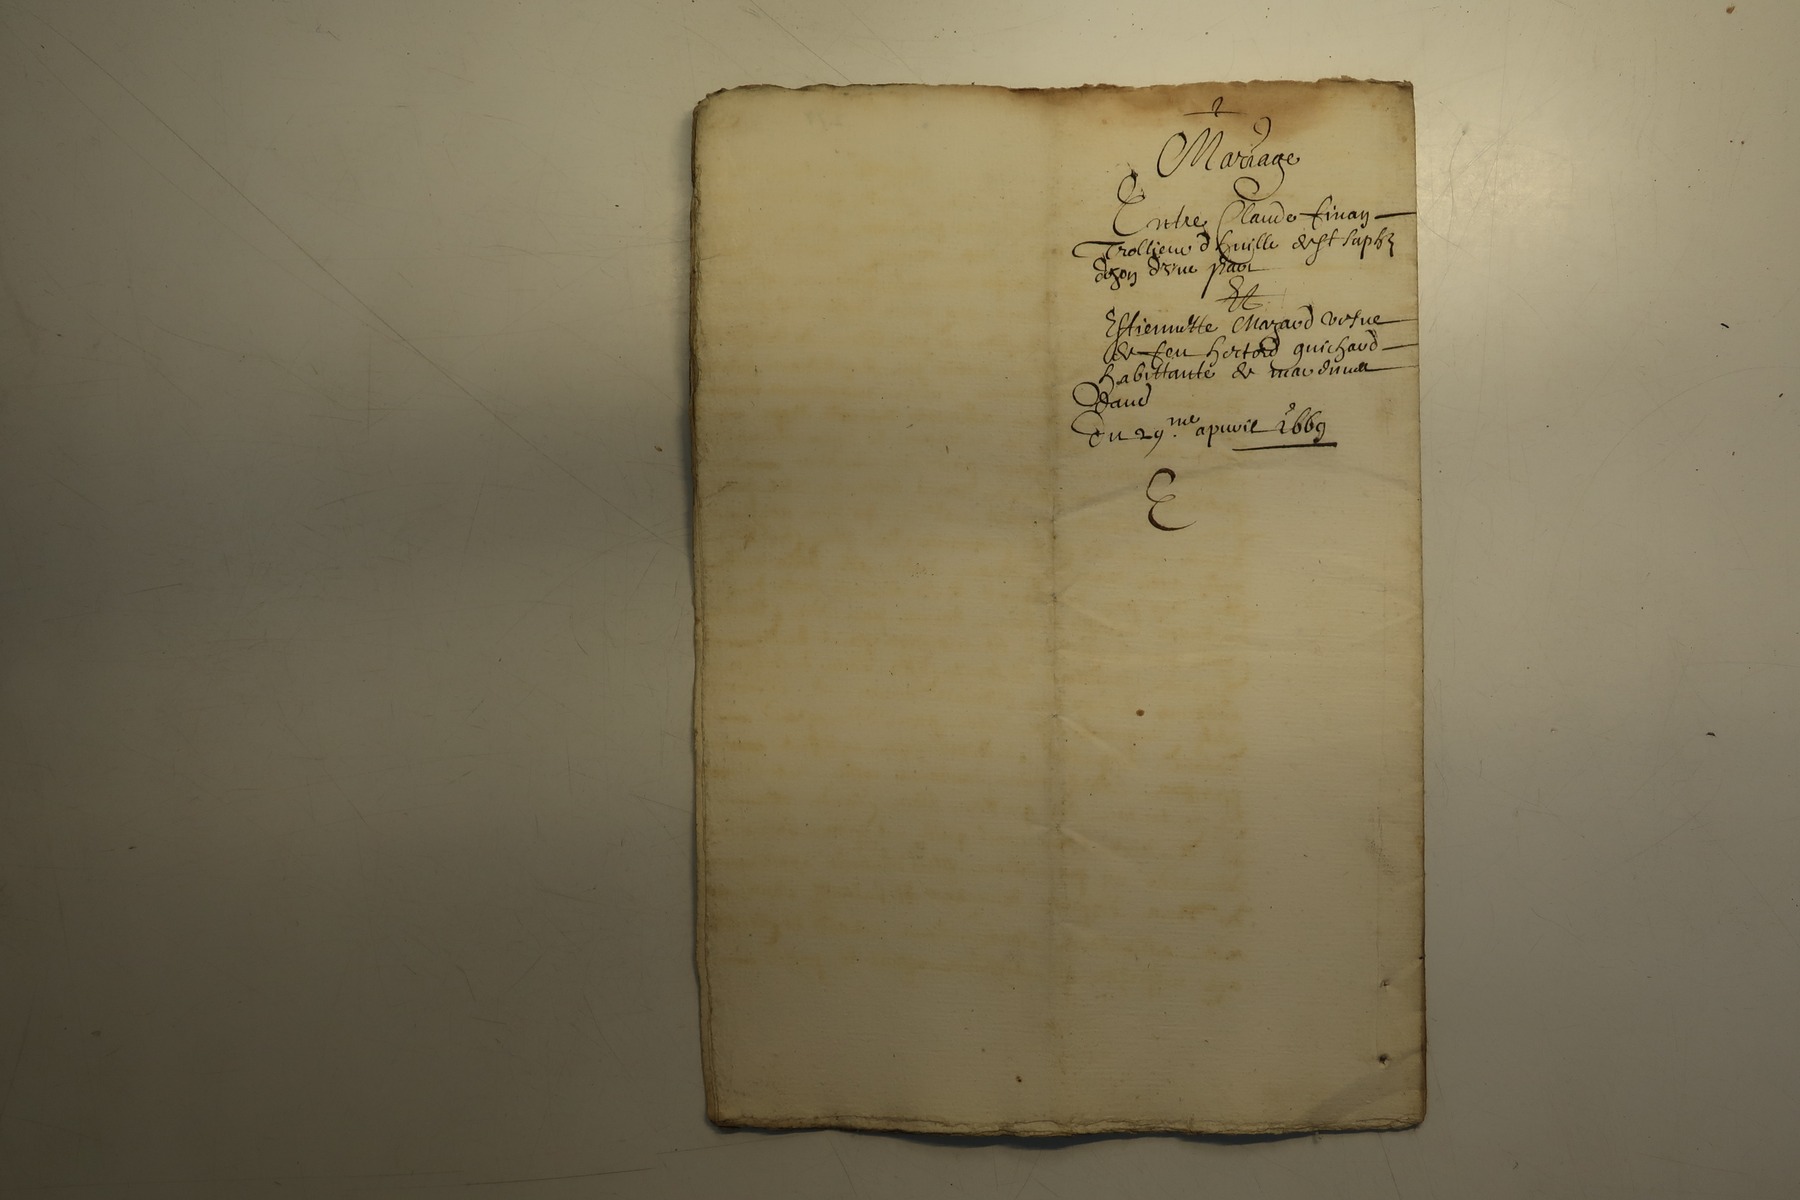 2
Mariage
Entre Claude finay
Trollieur d huille de st saph
dozon d'vne part
Et
Estiennette Mazard vefue
de feu hector guichard
habittante de
Daud
Du 29.me apuvil 1669
E